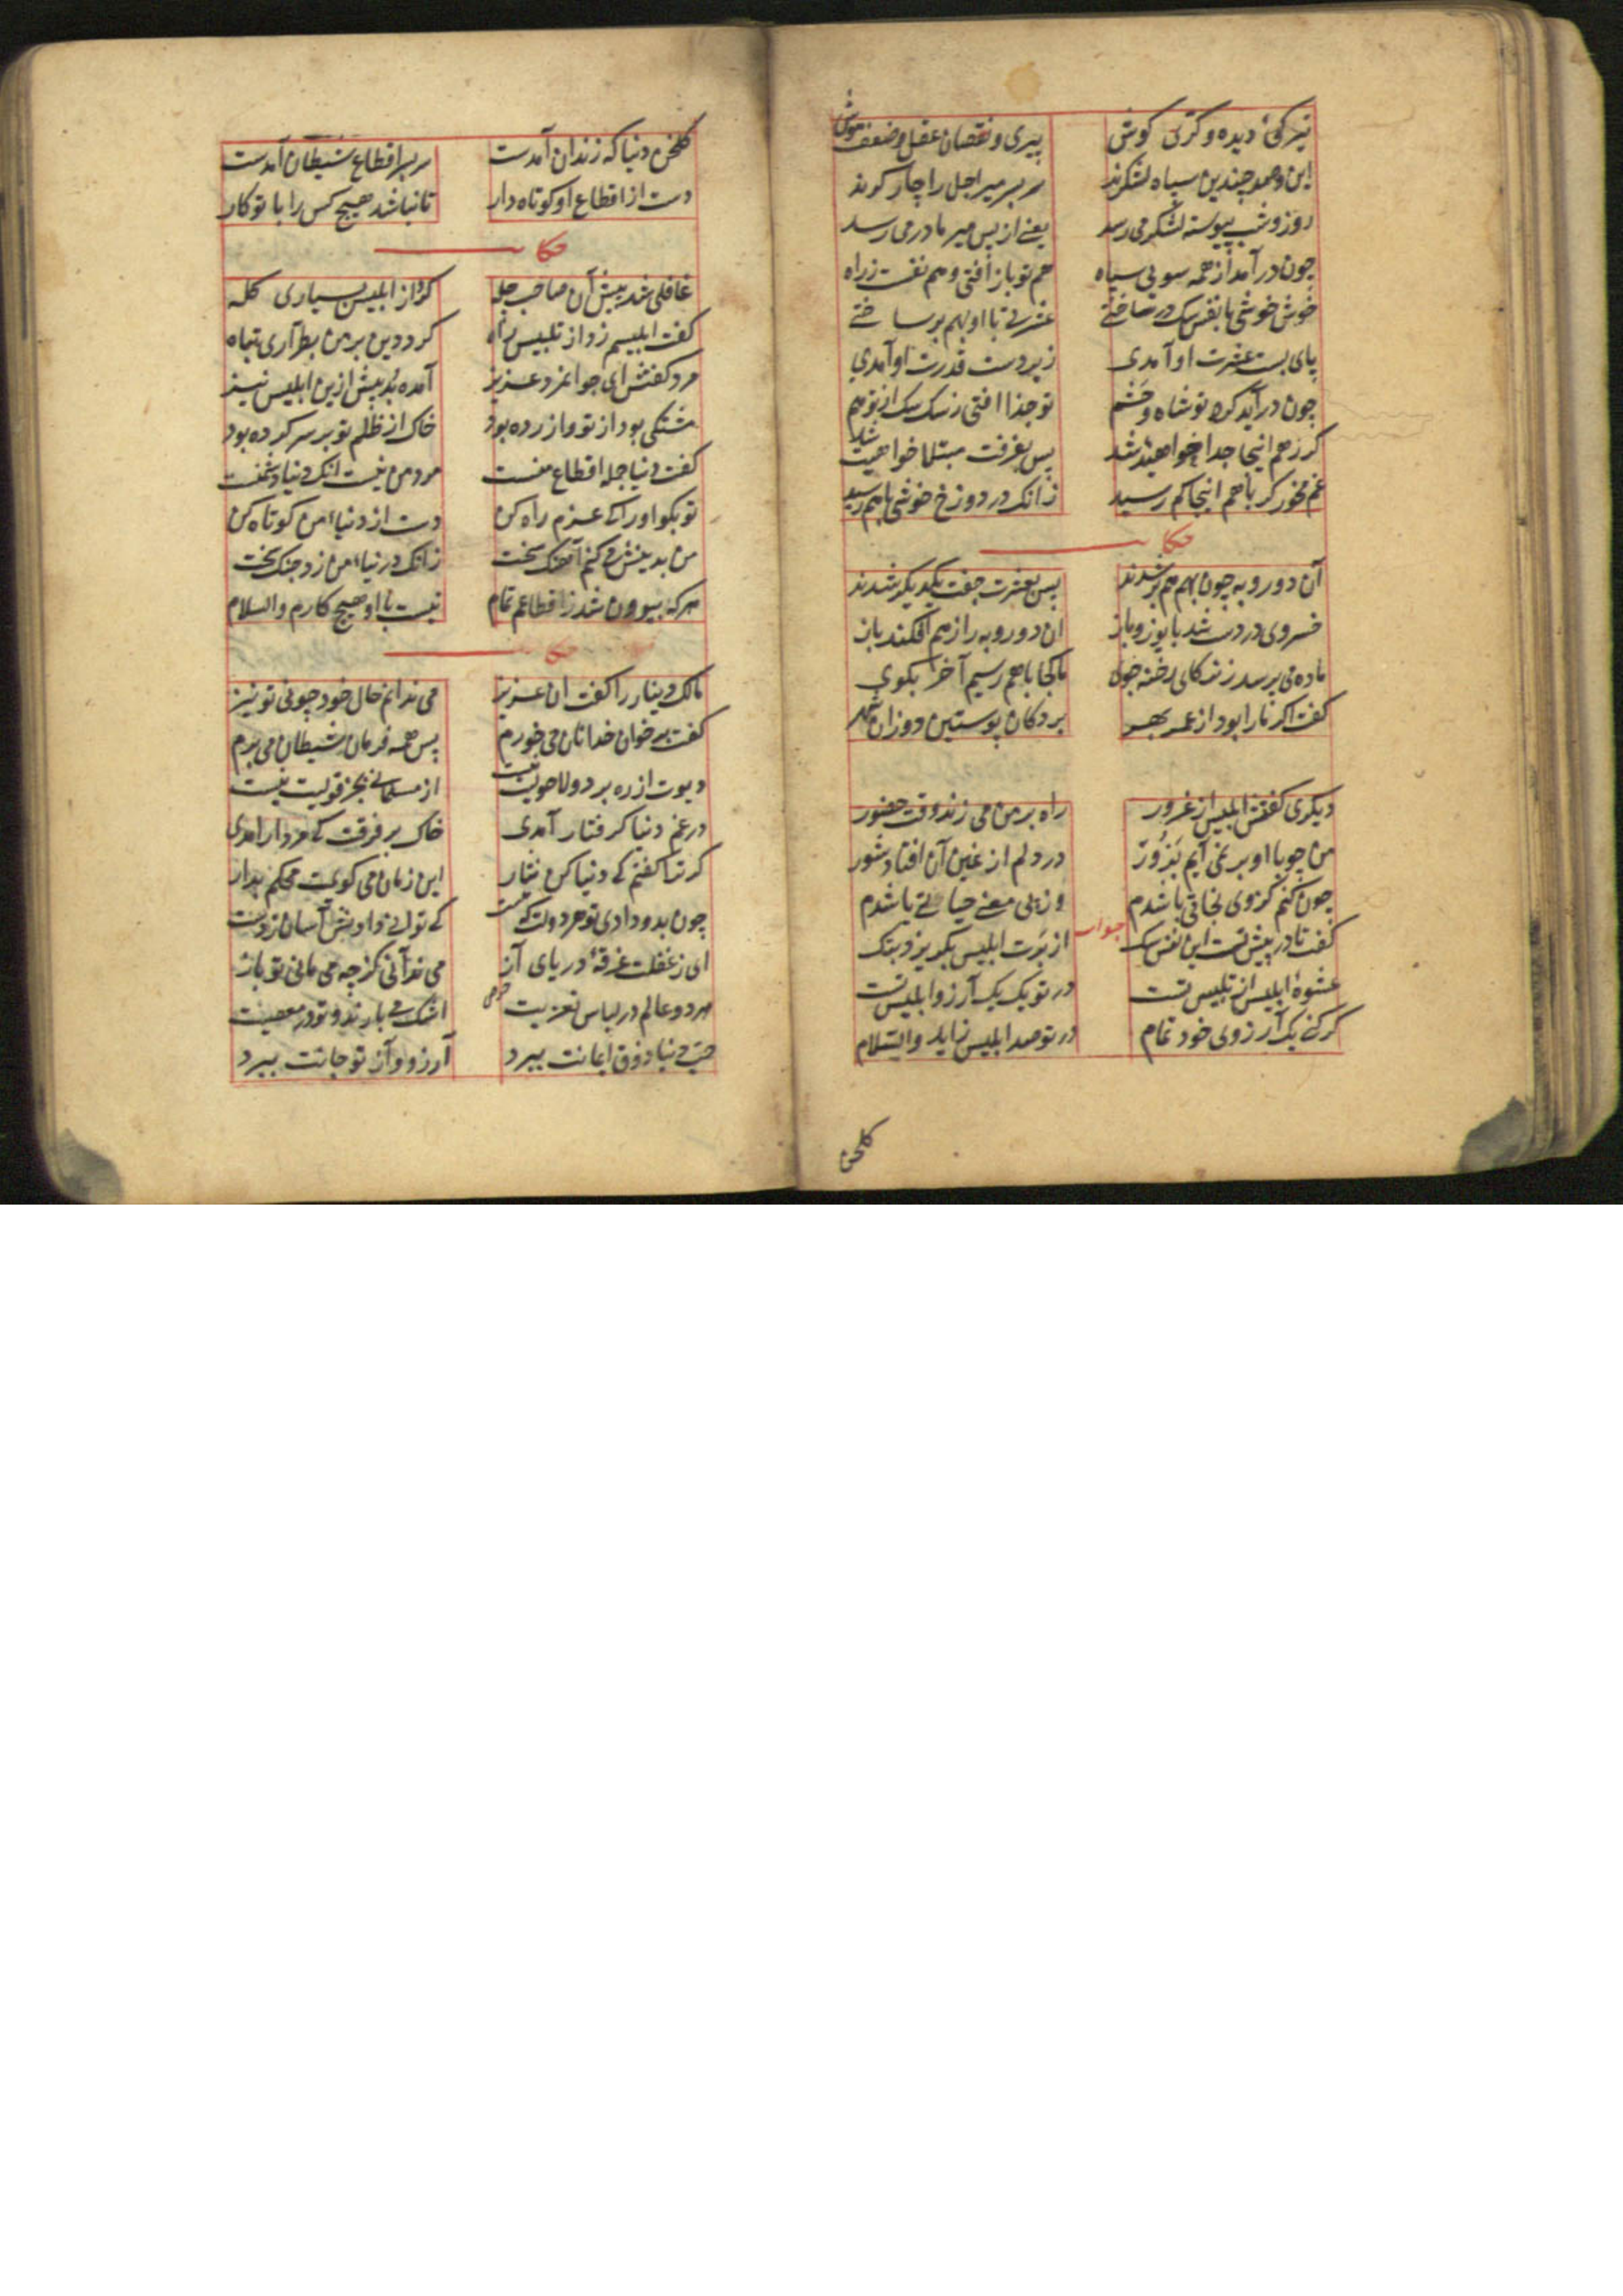 تیرگی دیده و کری گوش پیری و نقصان عقل و ضعف هوش
این و صد چندین سپاه لشکرند سر بسر میر اجل را چاکرند
روز و شب پیوسته لشکر می رسد یعنی از پس میر ما در می رسد
چون در آمد از همه سویی سپاه هم تو باز افتی و هم نفست ز راه
خوش خوشی با نفس سگ در ساختی عشرتی با او بهم بر ساختی
پای بست عشرت او آمدی زیر دست قدرت او آمدی
چون در آید گرد تو شاه و حشم تو جدا افتی ز سگ سگ از تو هم
گر ز هم اینجا جدا خواهید شد پس بفرقت مبتلا خواهیت شد
غم مخور گر با هم اینجا کم رسید زانک در دوزخ خوشی با هم رسید
حکا
آن دو روبه چون بهم هم بر شدند پس بعشرت جفت یکدیگر شدند
خسروی در دشت شد با یوز و باز آن دو روبه را ز هم افکند باز
ماده می پرسد ز نر کای رخنه جوی ما کجا با هم رسیم آخر بگوی
گفت اگر ما را بود از عمر بهر بر دکان پوستین دوزان شهر
دیگری گفتش ابلیس از غرور راه بر من می زند وقت حضور
من چو با او بر نمی آیم بزور در دلم از غبن آن افتاد شور
چون کنم کز وی نجاتی باشدم وز می معنی حیاتی باشدم
جواب
گفت تا در پیش تست این نفس سگ از برت ابلیس بگریزد بتک
عشوهٔ ابلیس از تلبیس تست در تو یک یک آرزو ابلیس تست
گر کنی یک آرزوی خود تمام در تو صد ابلیس زاید والسلام
گلخن
گلخن دنیا که زندان آمدست سر بسر اقطاع شیطان آمدست
دست از اقطاع او کوتاه دار تا نباشد هیچ کس را با تو کار
حکا
غافلی شد پیش آن صاحب چله کرد از ابلیس بسیاری گله
گفت ابلیسم زد از تلبیس راه کرد دین بر من بطراری تباه
مرد گفتش ای جوانمرد عزیز آمده بد پیش ازین ابلیس نیز
مشتکی بود از تو و آزرده بود خاک از ظلم تو بر سر کرده بود
گفت دنیا جمله اقطاع منست مرد من نیست آنک دنیا دشمنست
تو بگو او را که عزم راه کن دست از دنیاء من کوتاه کن
من بدینش می کنم آهنگ سخت زانک در دنیاء من زد چنگ سخت
هر که بیرون شد ز اقطاعم تمام نیست با او هیچ کارم والسلام
حکا
مالک دینار را گفت آن عزیز می ندانم حال خود چونی تو نیز
گفت بر خوان خدا نان می خورم پس همه فرمان شیطان می برم
دیوت از ره برد و لاحولیت نیست از مسلمانی بجز قولیت نیست
در غم دنیا گرفتار آمدی خاک بر فرقت که مردار آمدی
گر ترا گفتم که دنیا کن نثار این زمان می گویمت محکم بدار
چون بدو دادی تو هر دولت که هست کی توانی دادنش آسان ز دست
ای ز غفلت غرقهٔ دریای آز می ندانی کز چه می مانی تو باز
هر دو عالم در لباس تعزیت اشک می بارند و تو در معصیت
حب دنیا ذوق ایمانت ببرد آرزو و آز تو جانت ببرد